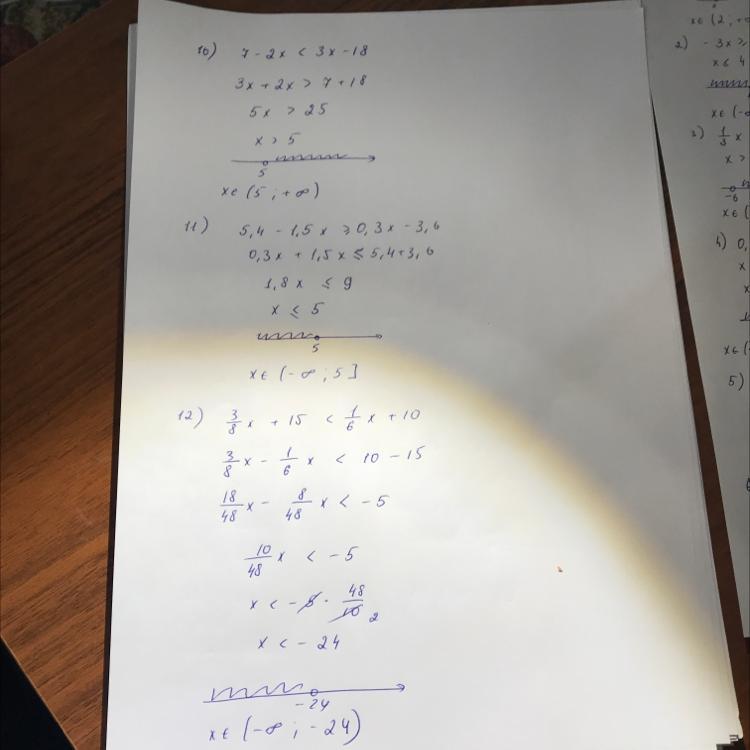 10) 7 - 2x < 3x - 18
3x + 2x > 7 + 18
5x > 25
x > 5
5
x ∈ (5 ; +∞)
11) 5,4 - 1,5x ≥ 0,3x - 3,6
0,3x + 1,5x ≤ 5,4 + 3,6
1,8x ≤ 9
x ≤ 5
5
x ∈ (-∞ ; 5]
12) 3/8 x + 15 < 1/6 x + 10
3/8 x - 1/6 x < 10 - 15
18/48 x - 8/48 x < -5
10/48 x < -5
x < -5 · 48/10 2
x < -24
-24
x ∈ (-∞ ; -24)
x ∈ (2 ; +
2) - 3x ≥
x ≤ 4
x ∈ (-∞
3) 1/3 x
x >
-6
x ∈ (
4) 0,
x
x
x ∈ (
5)